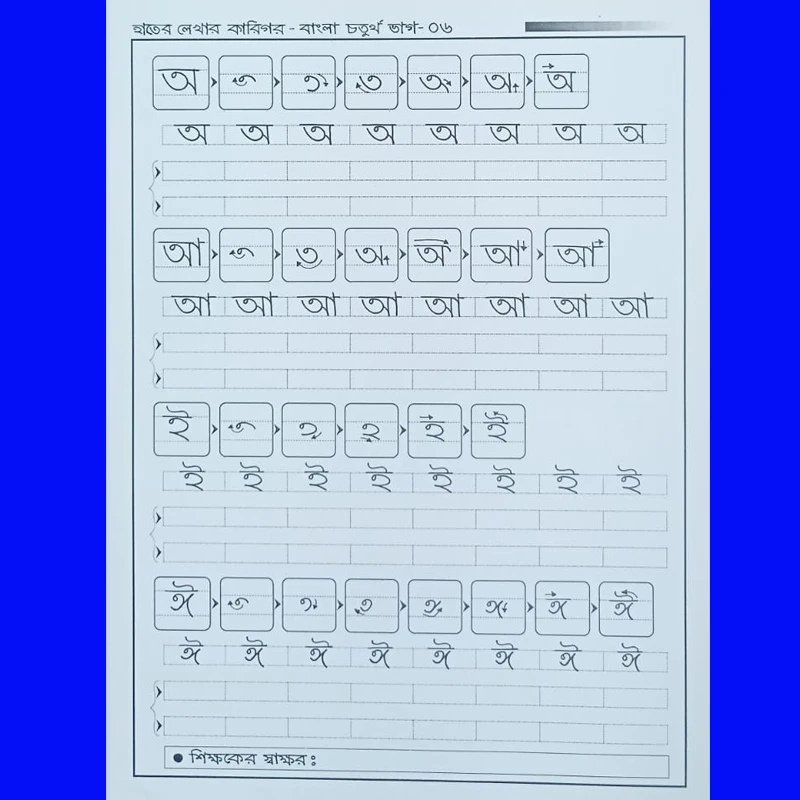 হাতের লেখার কারিগর - বাংলা চতুর্থ ভাগ- ০৬
অ
অ অ অ অ অ অ অ অ
আ
আ আ আ আ আ আ আ আ
ই
ই ই ই ই ই ই ই ই
ঈ
ঈ ঈ ঈ ঈ ঈ ঈ ঈ ঈ
● শিক্ষকের স্বাক্ষর :